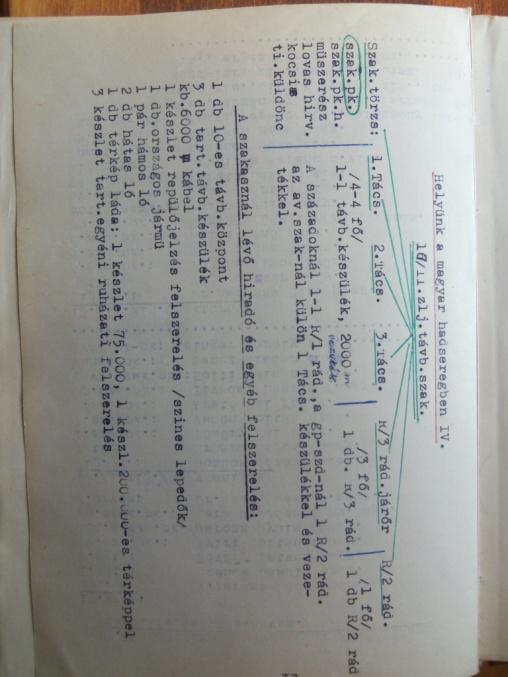 Helyünk a magyar hadseregben IV.
10/II.zlj.távb.szak.
Szak.törzs: 1.Tács. 2.Tács. 3.Tács. R/3 rád.járőr R/2 rád.
szak.pk. /4-4 fő/ /3 fő/ /1 fő/
szak.pk.h. 1-1 távb.készülék, 2000 m vezeték 1 db. R/3 rád. 1 db R/2 rád
műszerész
lovas hirv. A századoknál 1-1 R/1 rád., a gp-szd-nál 1 R/2 rád.
kocsis az av.szak-nál külön 1 Tács. készülékkel és veze-
ti.küldönc tékkel.
A szakasznál lévő hiradó és egyéb felszerelés:
1 db 10-es távb.központ
3 db tart.távb.készülék
kb.6000 m kábel
1 készlet repülőjelzés felszerelés /szines lepedők/
1 db.országos jármü
1 pár hámos ló
2 db hátas ló
1 db térkép láda: 1 készlet 75.000, 1 készl.200.000-es térképpel
3 készlet tart.egyéni ruházati felszerelés